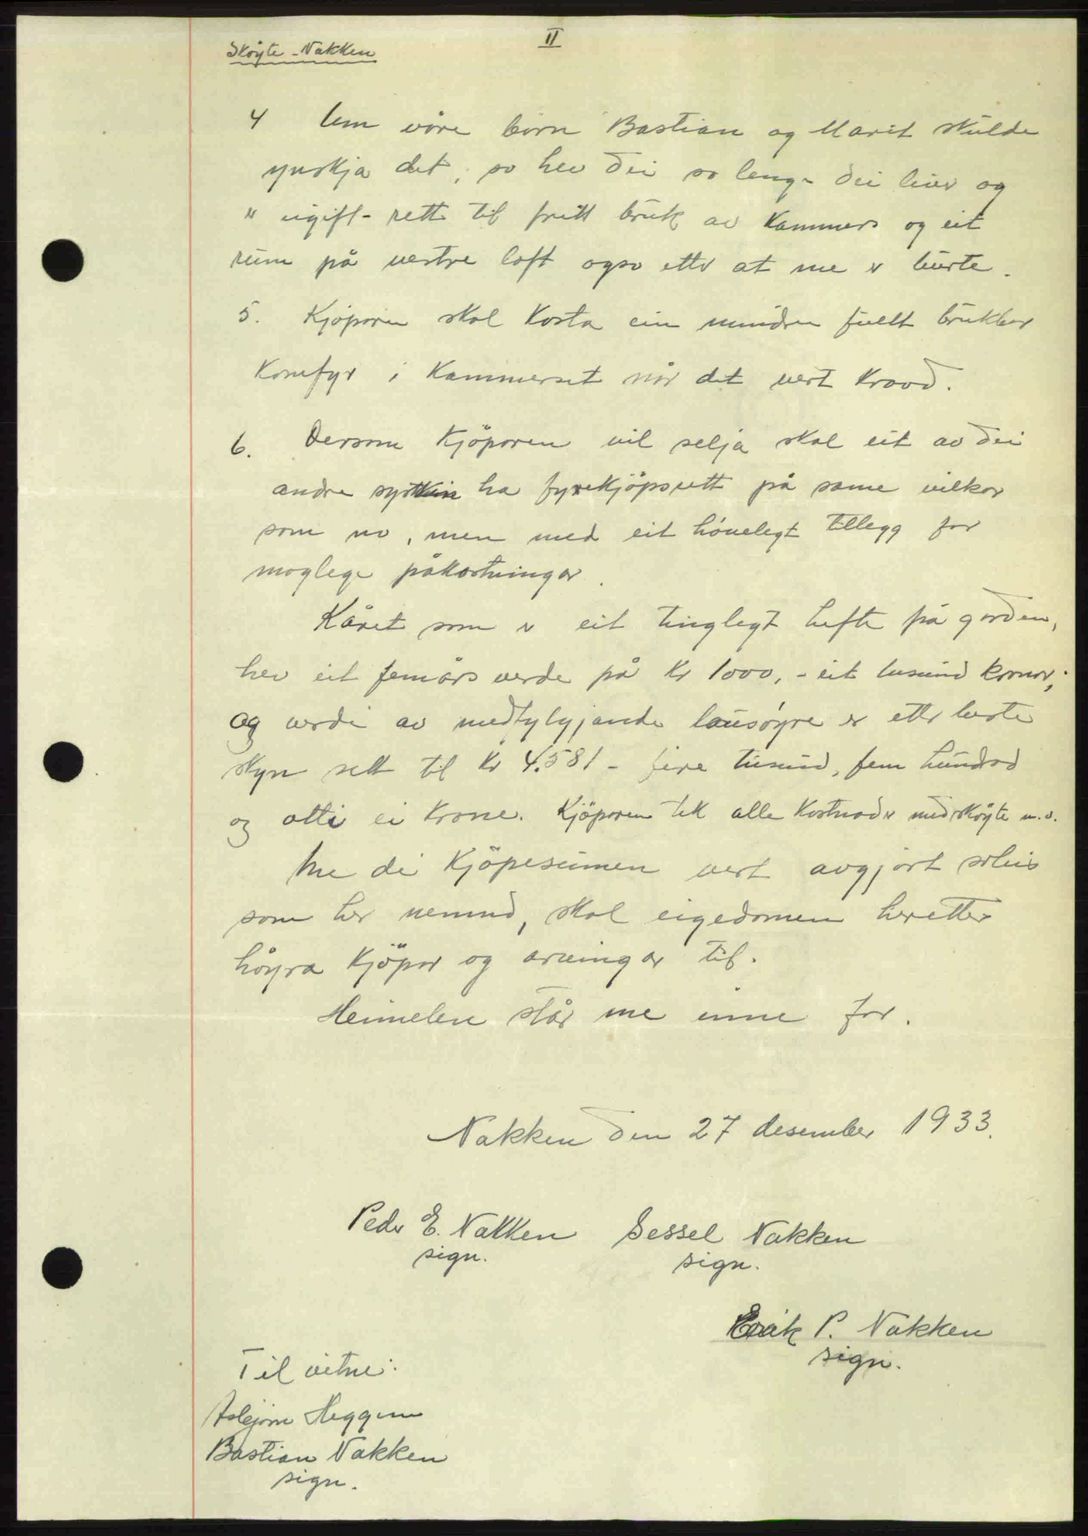 Skøyte - Nakken
II
4 Um våre born Bastian og Marit skulde
ynskja det, so hev dei so lenge dei liver og
er ugift - rett til fritt bruk av kammers og eit
rum på vestre loft ogso etter at me er burte.
5. Kjöparen skal kosta ein mindre fullt brukbar
komfyr i kammerset når det vert kravd.
6. Dersom kjöparen vil selja skal eit av dei
andre syskin ha fyrekjöpsrett på same vilkor
som no, men med eit höveleg tillegg for
moglege påkostningar.
Kåret som er eit tinglegt hefte på garden,
hev eit femårs verde på kr 1000,- eit tusund kronor;
og verdi av medfylgjande lausöyre er etter beste
skyn sett til kr 4.581 - fire tusund, fem hundrad
og otti ei krone. Kjöparen tek alle kostnader med skøyte m.v.
Me di kjöpesumen vert avgjort soleis
som her nemnd, skal eigedomen heretter
höyra kjöpar og arvingar til.
Heimelen står me inne for.
Nakken den 27 desember 1933.
Peder E. Nakken Sessel Nakken
sign. sign.
Erik P. Nakken
sign.
Til vitne:
Asbjörn Heggem
Bastian Nakken
sign.